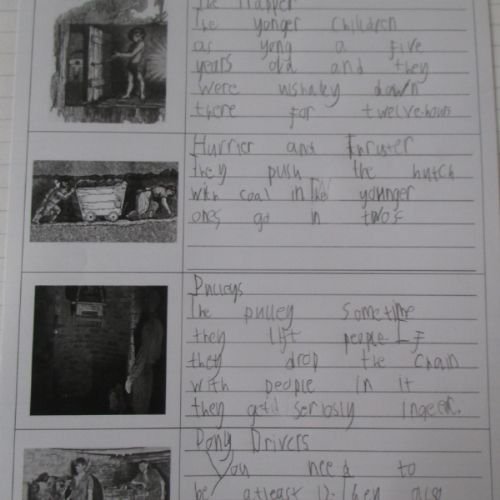 The Trapper
The yonger children
as yong a five
years old and they
were ushaley down
there for twelve-hours
Hurrier and Thruster
they push the hutch
with coal in the younger
ones go in two's
Pulleys
The pulley sometime
they lift people. If
they drop the chain
with people in it
they getd seriosly ingeer.
Pony Drivers
You need to
be atleast